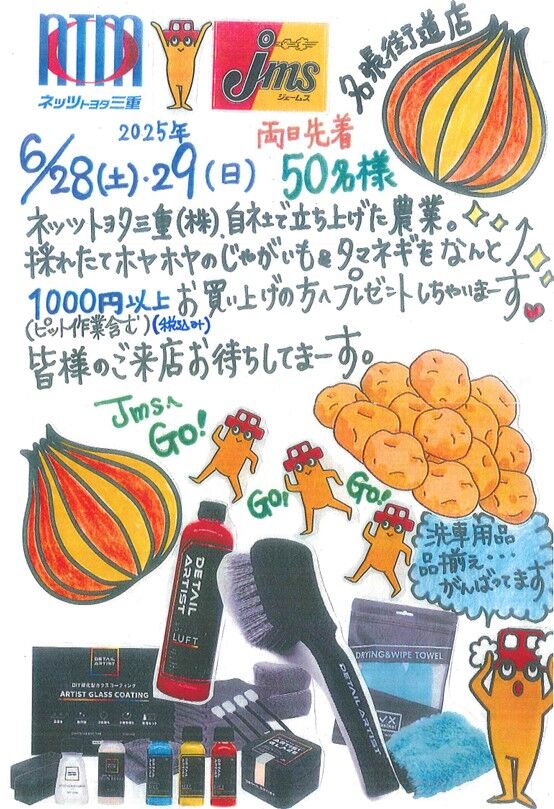 NTM
ネッツトヨタ三重
jms
ジェームス
名張街道店
2025年
6/28(土)・29(日)
両日先着
50名様
ネッツトヨタ三重(株)、自社で立ち上げた農業。
採れたてホヤホヤのじゃがいも&タマネギをなんと
1000円以上お買い上げの方へプレゼントしちゃいまーす
(ピット作業含む)(税込み)
皆様のご来店お待ちしてまーす。
JmsへGO!
GO!
GO!
洗車用品
品揃え・・・・
がんばってます
DETAIL ARTIST
LUFT
DETAIL ARTIST
DRYING&WIPE TOWEL
DETAIL ARTIST
ARTIST GLASS COATING